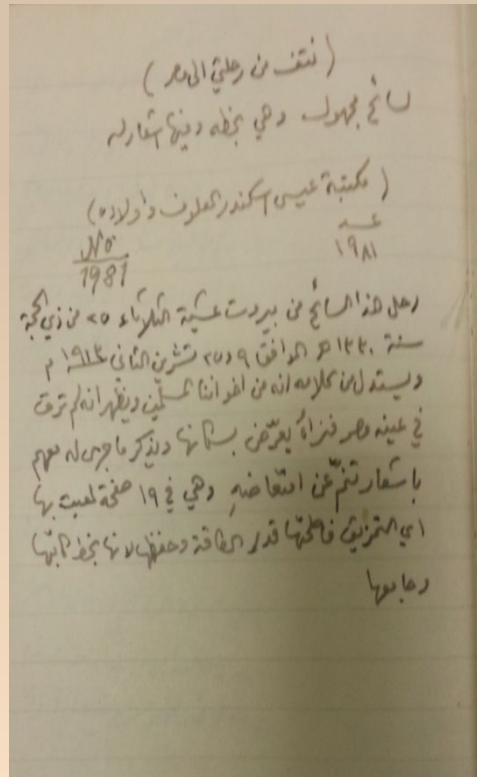 (نتف من رحلتي الى مصر)
لسائح مجهول وهي بخطه وفيها اشعار له
(مكتبة عيسى اسكندر المعلوف واولاده)
عدد
١٩٨١
No
1981
رحل هذا السائح من بيروت عشية الثلاثاء ٢٥ من ذي الحجة
سنة ١٣٣٠ هـ الموافق تشرين الثاني ١٩١٢ م
ويستدل من كلامه انه من اخواننا المسلمين ويظهر انه لم ترق
في عينه مصر فنراه يعرّض بسكانها ويذكر ما جرى له معهم
باشعار تنمّ عن امتعاضهِ وهي في ١٩ صفحة لعبت بها
ايدي التمزيق فاصلحتها قدر الطاقة وحفظها لانها بخط كاتبها
وجامعها